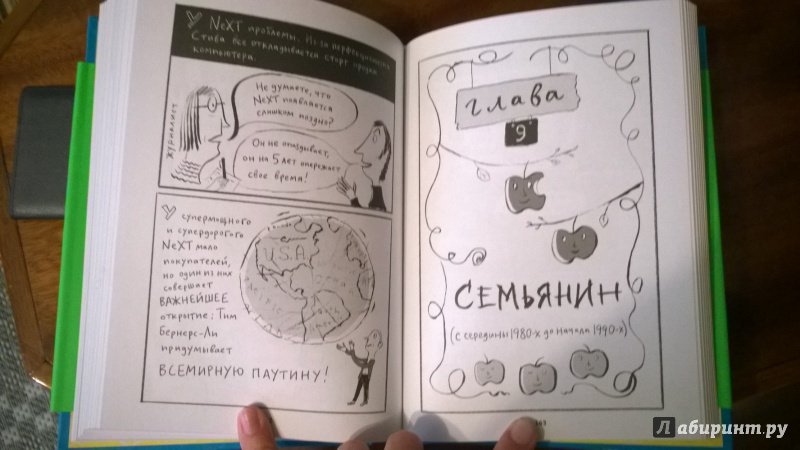 У NeXT проблемы. Из-за перфекционизма
Стива всё откладывается старт продаж
компьютера.
ЖУРНАЛИСТ
Не думаете, что
NeXT появляется
слишком поздно?
Он не опаздывает,
он на 5 лет опережает
своё время!
У супермощного
и супердорогого
NeXT мало
покупателей,
но один из них
совершает
ВАЖНЕЙШЕЕ
открытие: Тим
Бернерс-Ли
придумывает
ВСЕМИРНУЮ ПАУТИНУ!
U.S.A
глава
9
СЕМЬЯНИН
(с середины 1980-х до начала 1990-х)
163
Лабиринт.ру